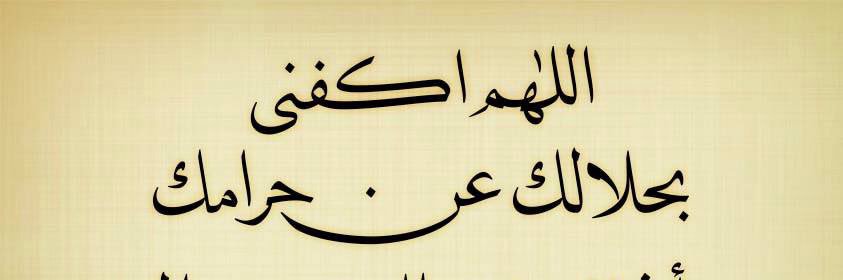 اللهم اكفنى
بحلالك عن حرامك